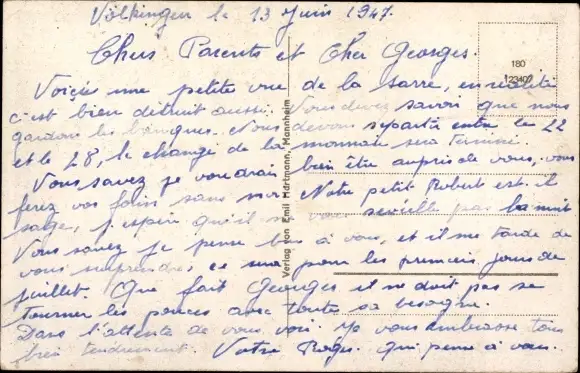 Völkingen le 13 Juin 1947.
Chers Parents et Cher Georges.
Voici une petite vue de la Sarre, en réalité
c'est bien détruit aussi. Vous devez savoir que nous
gardons les banques. Nous devons repartir entre le 22
et le 28, le change de la monnaie sera terminé.
Vous savez je voudrais bien être auprès de vous, vous
ferez vos foins sans moi. Notre petit Robert est-il
sage, j'espère qu'il ne vous réveille pas la nuit
Vous savez je pense bien à vous, et il me tarde de
vous surprendre, ce sera pour les premiers jours de
juillet. Que fait Georges il ne doit pas se
tourner les pouces avec toute sa besogne.
Dans l'attente de vous voir. Je vous embrasse tous
bien tendrement. Votre Roger. qui pense à vous.
Verlag von Emil Hartmann, Mannheim
180